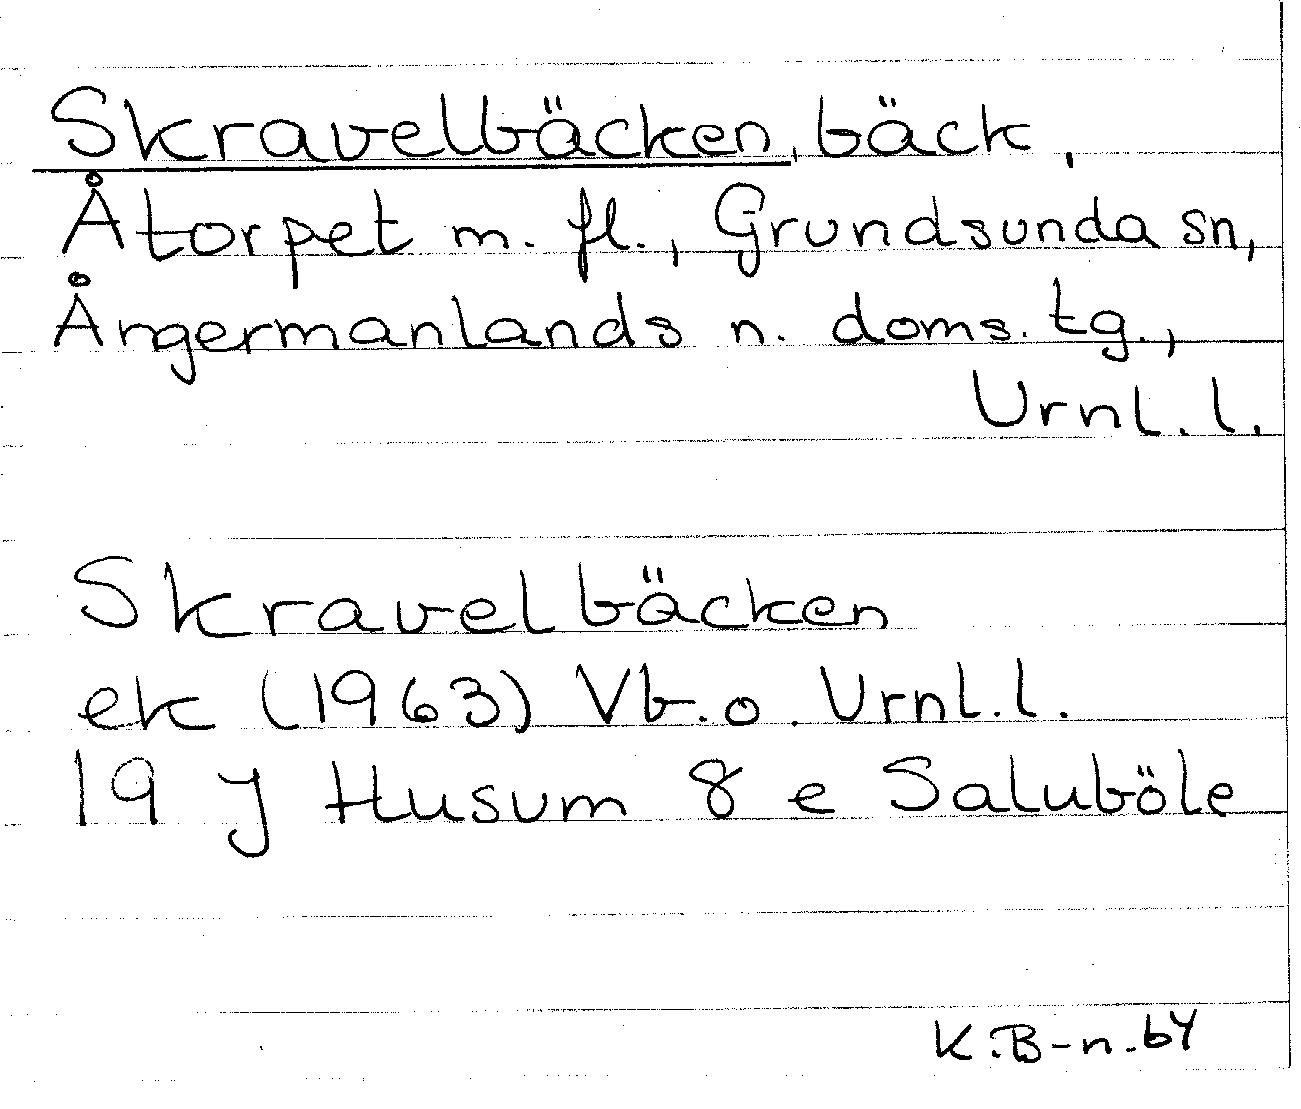 Skravelbäcken, bäck,
Åtorpet m. fl., Grundsunda sn,
Ångermanlands n. doms. tg.,
Vrnl. l.
Skravelbäcken
ek (1963) Vb. o. Vrnl. l.
19 J Husum 8 e Saluböle
K.B-n. 64